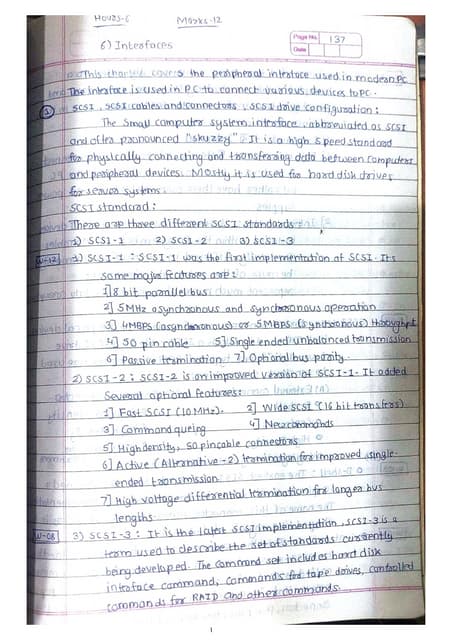 Hours-6 Marks-12
Page No. 137
Date
6) Interfaces
This chapter covers the peripheral interface used in modern PC.
The interface is used in PC to connect various devices to PC.
① SCSI, SCSI cables and connectors, SCSI drive configuration:
The small computer system interface, abbreviated as SCSI
and often pronounced "skuzzy". It is a high speed standard
for physically connecting and transferring data between computers
and peripheral devices. Mostly it is used for hard disk drives
for server systems.
SCSI standard:
There are three different SCSI standards
1) SCSI-1 2) SCSI-2 3) SCSI-3
W-12 1) SCSI-1: SCSI-1 was the first implementation of SCSI. Its
some major features are:
1] 8 bit parallel bus
2] 5MHz asynchronous and synchronous operation
3] 4MBPS (asynchronous) or 5MBPS (synthronous) throughput
4] 50 pin cable 5] Single ended unbalanced transmission
6] Passive termination 7] Optional bus parity.
2) SCSI-2: SCSI-2 is an improved version of SCSI-1. It added
Several optional features:
1] Fast SCSI (10MHz). 2] Wide SCSI (16 bit transfers)
3] Command queing 4] New commands
5] High density, 50 pin cable connectors
6] Active (Alternative-2) termination for improved single-
ended transmission
7] High voltage differential termination for longer bus
lengths.
W-08 3) SCSI-3: It is the latest SCSI implementation, SCSI-3 is a
term used to describe the set of standards currently
being developed. The command set includes hard disk
interface command, commands for tape drives, controlled
commands for RAID and other commands.